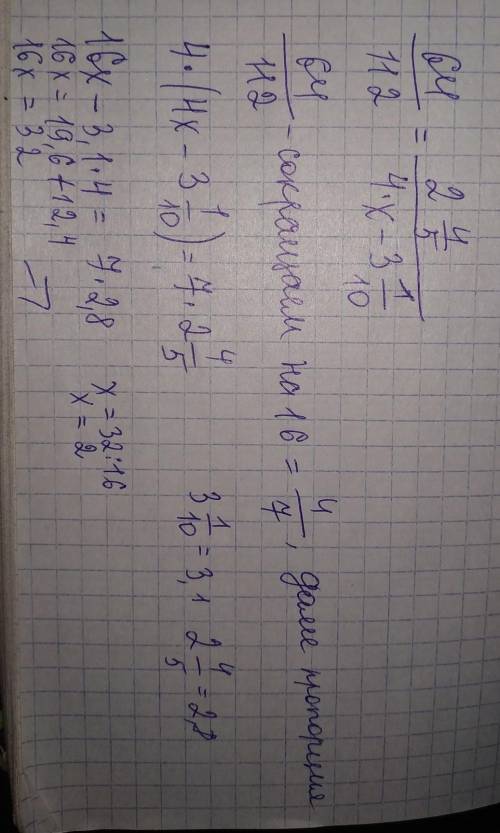 64/112 = 2 4/5 / 4·x - 3 1/10
64/112 - сокращаем на 16 = 4/7, далее пропорция
4·(4x - 3 1/10) = 7·2 4/5    3 1/10 = 3,1    2 4/5 = 2,8
16x - 3,1·4 = 7·2,8    x = 32:16
16x = 19,6 + 12,4    x = 2
16x = 32 =>